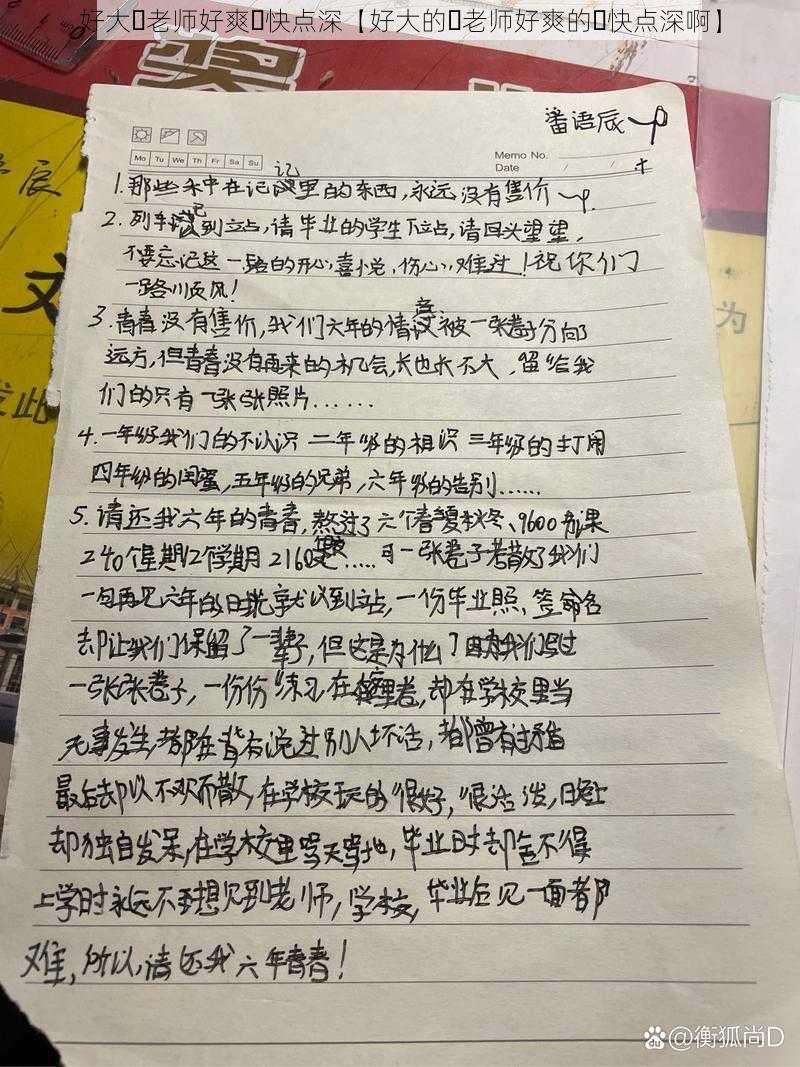 好大老师好爽快点深【好大的老师好爽的快点深啊】
奖
Memo No.
Mo Tu We Th Fr Sa Su
Date / /
1.那些年中在记记里的东西,永远没有售价
2.列车已到立占,请毕业的学生下立占,请回头望望,
不要忘记这一路的开心,喜悦,伤心,难过!祝你们
一路川页风!
3.青春没有售价,我们六年的情被一张卷子分向
远方,但青春没有再来的机会,长也长不大,留给我
们的只有一张张照片......
4.一年级我们的不认识 二年级的相识 三年级的打闹
四年级的闺蜜,五年级的兄弟,六年级的告别......
5.请还我六年的青春,熬过了六个春夏秋冬、9600节课
240个星期12个学期 2160.....可一张卷子若散了我们
一句再见六年的时光就以到立占,一份毕业照、签命名
去卩让我们保留了一辈子,但这是为什么?因为我们写过
一张张卷子,一份份练习,在里卷,却在学校里当
无事发生,都在背有说过别人坏话,都曾有过矛盾
最后却以不欢而散,在学校玩的很好,很活泼,日晚上
却独自发呆,在学校里骂天骂地,毕业时却舍不得
上学时永远不想见到老师,学校,毕业后见一面都
难,所以,请还我六年青春!
文
为
发此
@衡狐尚D